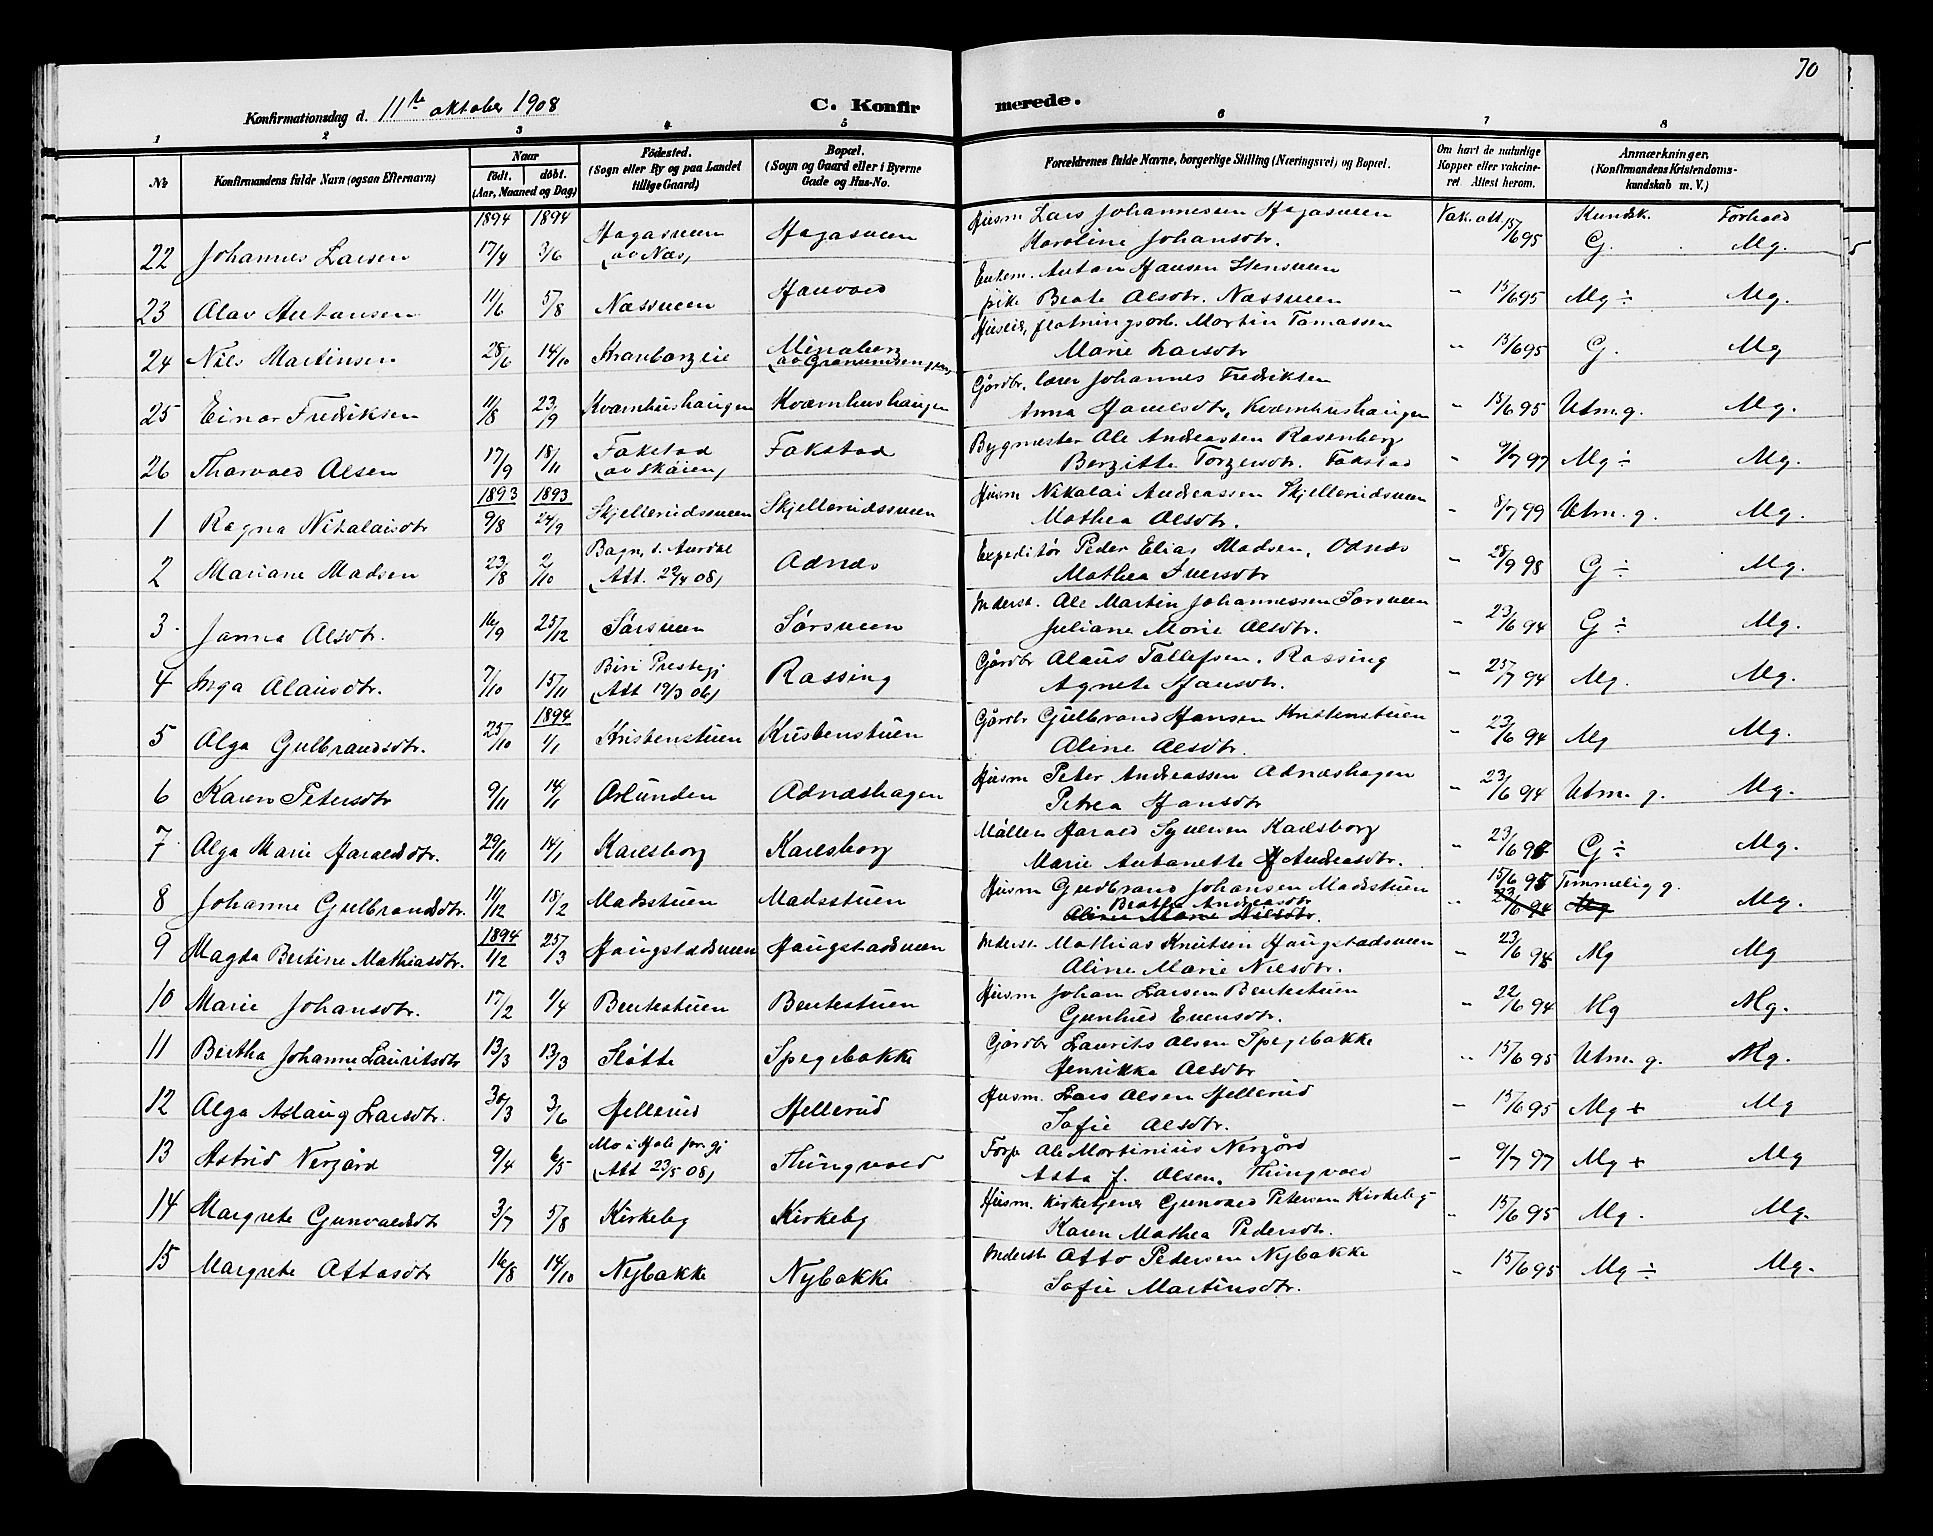 70
Konfirmationsdag d. 11te oktober 1908 C. Konfirmerede.
1 2 3 4 5 6 7 8
No Konfirmandens fulde Navn (ogsaa Efternavn) Naar födt. döbt. (Aar, Maaned og Dag) Födested. (Sogn eller By og paa Landet tillige Gaard) Bopæl. (Sogn og Gaard eller i Byerne Gade og Hus-No. Forældrenes fulde Navne, borgerlige Stilling (Næringsvei) og Bopæl. Om havt de naturlige Kopper eller vakcineret. Attest herom. Anmærkninger. (Konfirmandens Kristendomskundskab m. V.)
1894 1894 Vak. att. Kundsk. Forhold
22 Johannes Larsen 17/4 3/6 Hagasveen (av Næs) Hagasveen Husm Lars Johannessen Hagasveen
Karoline Johansdtr. 15/6 95 G. Mg.
23 Olav Antonsen 11/6 5/8 Næssveen Hauvold Enkem. Anton Hansen Stensveen
pike Beate Olsdtr. Næssveen " 15/6 95 Mg ÷ Mg.
24 Nils Martinsen 28/6 14/10 Huseier, fløtningsarb. Martin Tomassen
Marie Larsdtr " 15/6 95 G. Mg
25 Einar Fredriksen 11/8 23/9 Kvamhushaugen Kvæmhushaugen Gårdbr, lærer Johannes Fredriksen
Anna Hansdtr, Kvæmhushaugen " 15/6 95 Utm. g. Mg.
26 Thorvald Olsen 17/9 18/11 Fakstad (av Skøien) Fakstad Bygmester Ole Andreassen Rosenberg
Bergitte Torgersdtr. Fakstad " 9/7 97 Mg ÷ Mg.
1893 1893
1 Ragna Nikolaisdtr 9/8 24/9 Skjellerudsveen Skjellerudsveen Husm Nikolai Andreassen Skjellerudsveen
Mathea Olsdtr. " 8/7 99 Utm. g. Mg.
2 Mariane Madsen 23/8 2/10 Bagn, s. Aurdal (Att. 29/4 08) Odnæs Expeditør Peder Elias Madsen, Odnæs
Mathea Iversdtr " 28/9 98 G ÷ Mg.
3 Janna Olsdtr. 16/9 25/12 Sørsveen Sørsveen Inderst. Ole Martin Johannessen Sørsveen
Juliane Marie Olsdtr. " 23/6 94 G ÷ Mg.
4 Inga Olausdtr. 7/10 15/11 Biri Prestegj (Att 19/3 06) Røssing Gårdbr Olaus Tollefsen, Røssing
Agnete Hansdtr. " 25/7 94 Mg. Mg.
1894
5 Olga Gulbrandsdtr. 25/10 1/1 Kristenstuen Kristenstuen Gårdbr Gulbrand Hansen Kristenstuen
Oline Olsdtr. " 23/6 94 Mg Mg.
6 Karen Petersdtr 9/11 14/1 Ørlunden Odnæshagen Husm Peter Andreassen Odnæshagen
Petrea Hansdtr " 23/6 94 Utm. g. Mg.
7 Olga Marie Haraldsdtr. 29/11 14/1 Karlsborg Karlsborg Møllen Harald Syversen Karlsborg
Marie Antonette Andreasdtr. " 23/6 97 G ÷ Mg.
8 Johanne Gulbrandsdtr. 11/12 18/2 Madsstuen Madsstuen Husm Gudbrand Johansen Madsstuen
Beathe Andreasdtr 15/6 95 Temmelig g.
Oline Marie Nilsdtr. " 23/6 94 Mg Mg.
1894
9 Magda Bertine Mathiasdtr. 1/2 25/3 Haugstadsveen Haugstadsveen Inderst. Mathias Knutsen Haugstadsveen
Oline Marie Nilsdtr. " 23/6 94 Mg Mg
10 Marie Johansdtr. 17/2 1/4 Bentestuen Bentestuen Husm Johan Larsen Bentestuen
Gunhild Evensdtr. " 22/6 94 Mg Mg.
11 Bertha Johanne Lauritsdtr 13/3 13/3 Sløtte Spegebakke Gårdbr Laurits Olsen Spegebakke
Henrikka Olsdtr " 15/6 95 Utm. g. Mg.
12 Olga Aslaug Larsdtr. 30/3 3/6 Hellerud Hellerud Husm. Lars Olsen Hellerud
Sofie Olsdtr. " 15/6 95 Mg + Mg
13 Astrid Nergård 9/4 6/5 (Att 23/5 08) Thingvold Forp Ole Martinius Nergård
Asta f. Olsen, Thingvold " 9/7 97 Mg + Mg
14 Margrete Gunvaldsdtr 3/7 5/8 Kirkeby Kirkeby Husm. kirketjener Gunvald Petersen Kirkeby
Karen Mathea Pedersdtr. " 15/6 95 Mg. Mg.
15 Margrete Ottosdtr 16/8 14/10 Nybakke Nybakke Inderst Otto Petersen Nybakke
Sofie Martinsdtr. " 15/6 95 Mg ÷ Mg.